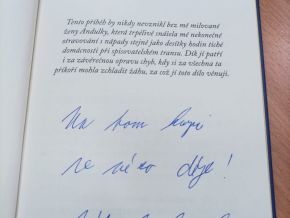 Tento příběh by nikdy nevznikl bez mé milované
ženy Andulky, která trpělivě snášela mé nekonečné
otravování s nápady stejně jako desítky hodin tiché
domácnosti při spisovatelském transu. Dík jí patří
i za závěrečnou opravu chyb, kdy si za všechna ta
příkoří mohla zchladit žáhu, za což jí toto dílo věnuji.
Na tom kopci
se něco děje!